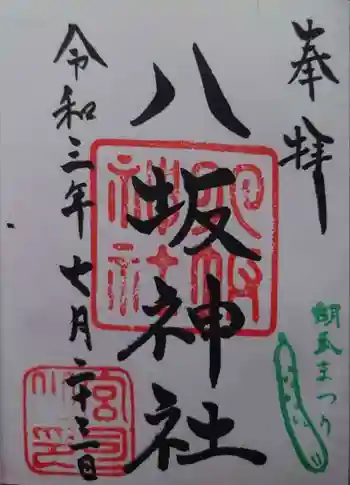 奉拝
八坂神社
令和三年七月二十三日
胡瓜まつり
宮司之印